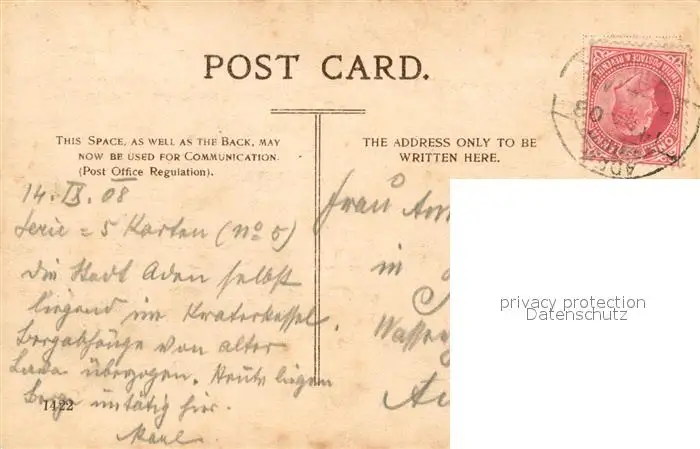 POST CARD.
THIS SPACE, AS WELL AS THE BACK, MAY
NOW BE USED FOR COMMUNICATION.
(Post Office Regulation).
THE ADDRESS ONLY TO BE
WRITTEN HERE.
INDIA POSTAGE & REVENUE
ONE ANNA
ADEN
08
14. IX. 08
Serie = 5 Karten (No 5)
Die Stadt Aden selbst
liegend im Kraterkessel.
Bergabhänge von alter
Lava überzogen. Heute liegen
untätig hier.
Karl
1422
Frau
in
privacy protection
Datenschutz